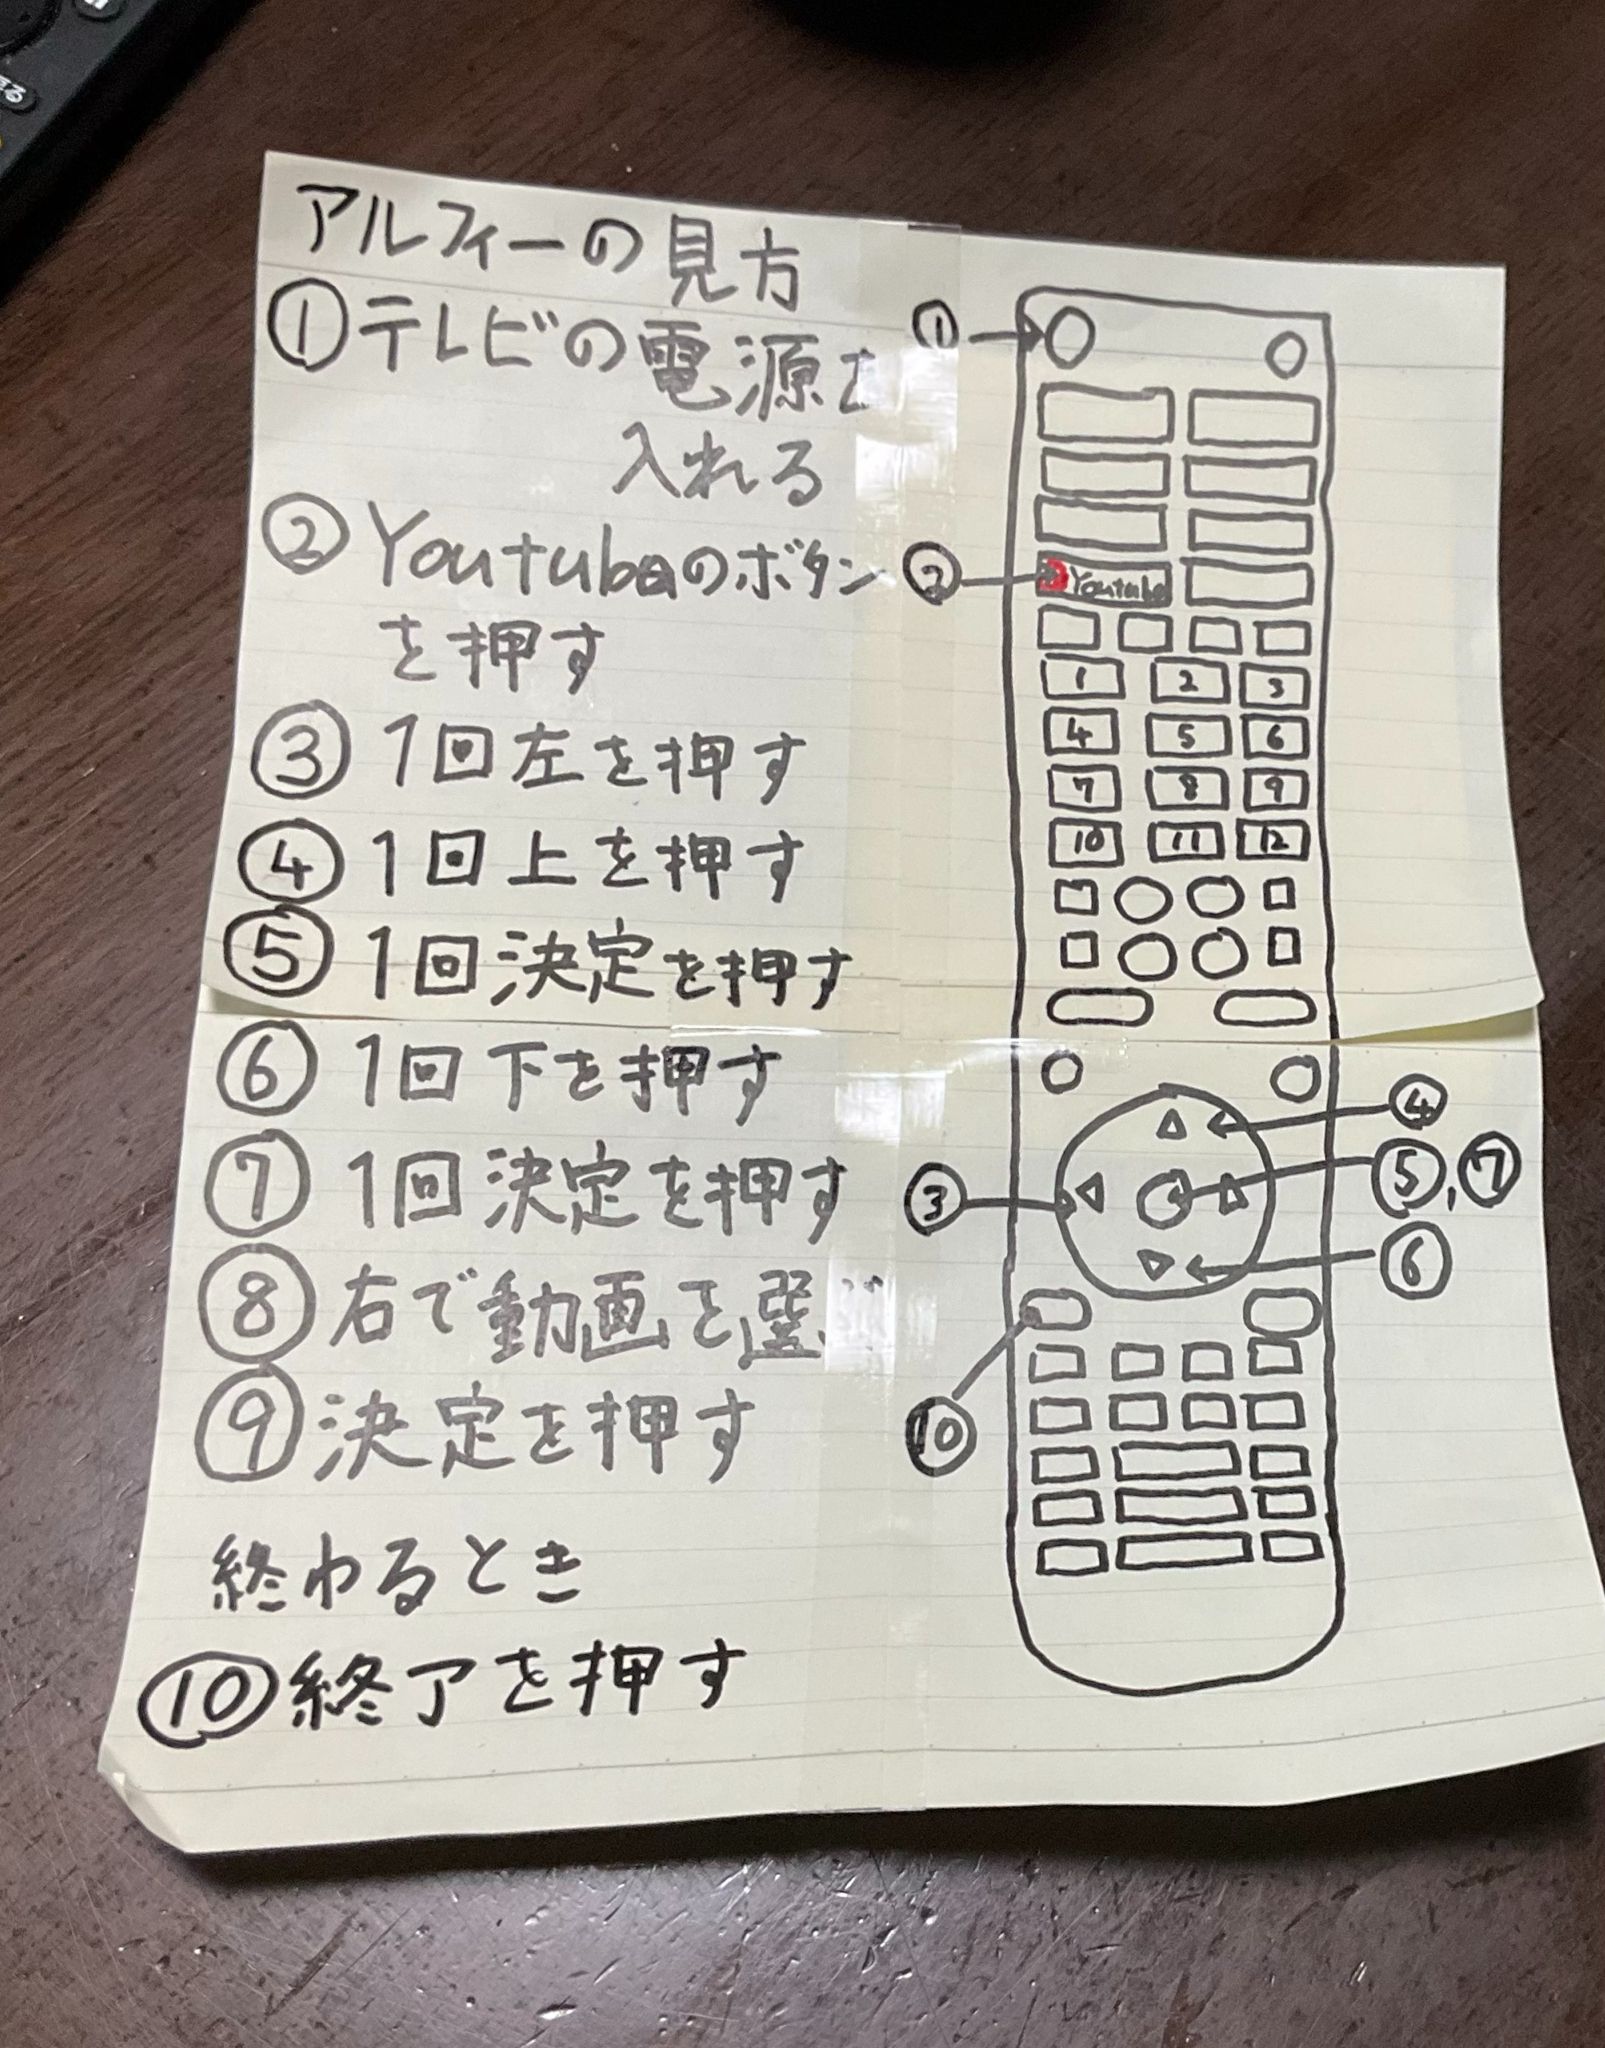 る
アルフィーの見方
①テレビの電源を
入れる
②Youtubeのボタン
を押す
③1回左を押す
④1回上を押す
⑤1回決定を押す
⑥1回下を押す
⑦1回決定を押す
⑧右で動画を選ぶ
⑨決定を押す
終わるとき
⑩終了を押す
①
②
Youtube
1 2 3
4 5 6
7 8 9
10 11 12
④
③
⑤,⑦
⑥
⑩